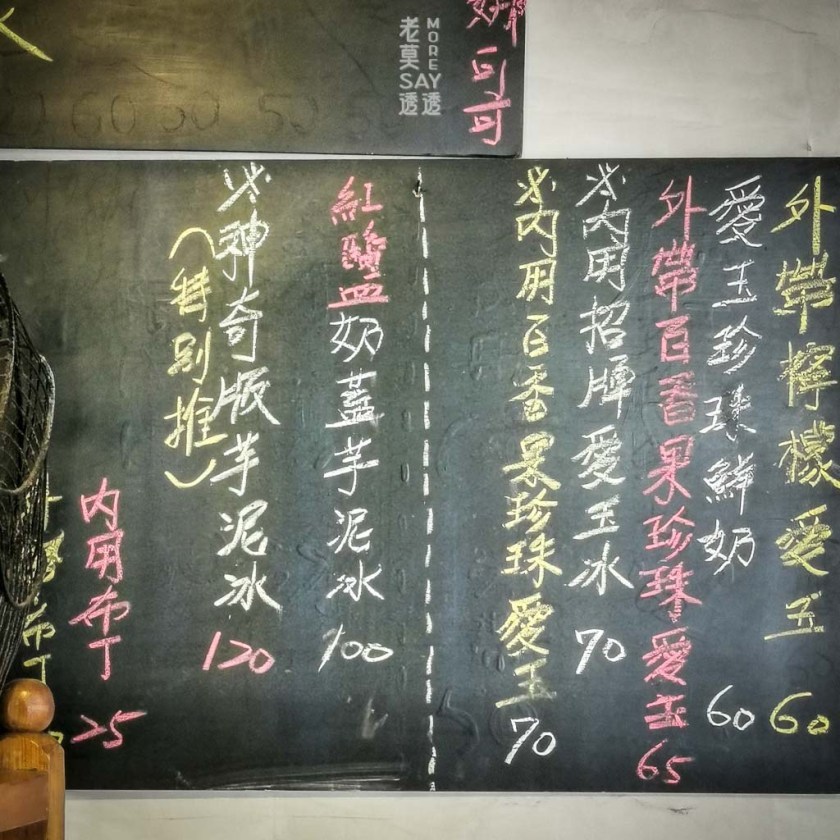 外帶檸檬愛玉 60
愛玉珍珠鮮奶 60
外帶百香果珍珠愛玉 65
必內用招牌愛玉冰 70
必內用百香果珍珠愛玉 70
紅鹽奶蓋芋泥冰 100
必神奇版芋泥冰 120
（特別推）
內用布丁 25
可可
老莫
MORE
SAY
透透